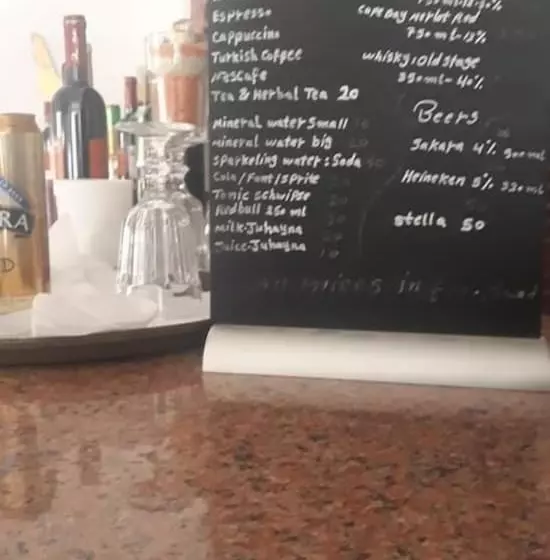 Espresso
Cappuccino
Turkish Coffee
Nescafe
Tea & Herbal Tea 20
Mineral water Small
mineral water big
Sparkeling water: Soda
Cola/Fant/Sprite
Tonic schwipse
Redbull 250 ml
milk-Juhayna
Juice-Juhayna
Cape Bay Merlot Red
750 ml-13%
whisky: old stage
350 ml-40%
Beers
Sakara 4%
Heineken 5% 330 ml
stella 50
RA